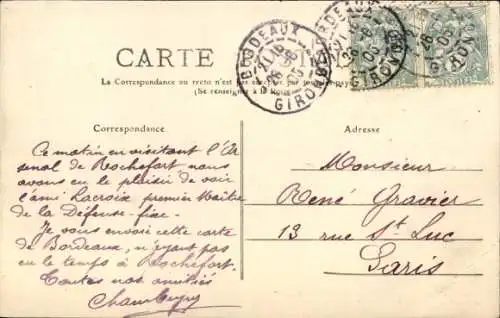 CARTE POSTALE
BORDEAUX
GIRONDE
La Correspondance au recto n'est pas acceptée par tous les pays
(Se renseigner à la Poste)
Correspondance
Adresse
Ce matin en visitant l'Ar
senal de Rochefort nous
avons eu le plaisir de voir
l'ami Lacroix premier Maître
de la Défense-fixe.
Je vous envoi cette carte
de Bordeaux, n'ayant pas
eu le temps à Rochefort.
Toutes nos amitiés
Monsieur
René Gravier
13 rue St Luc
Paris